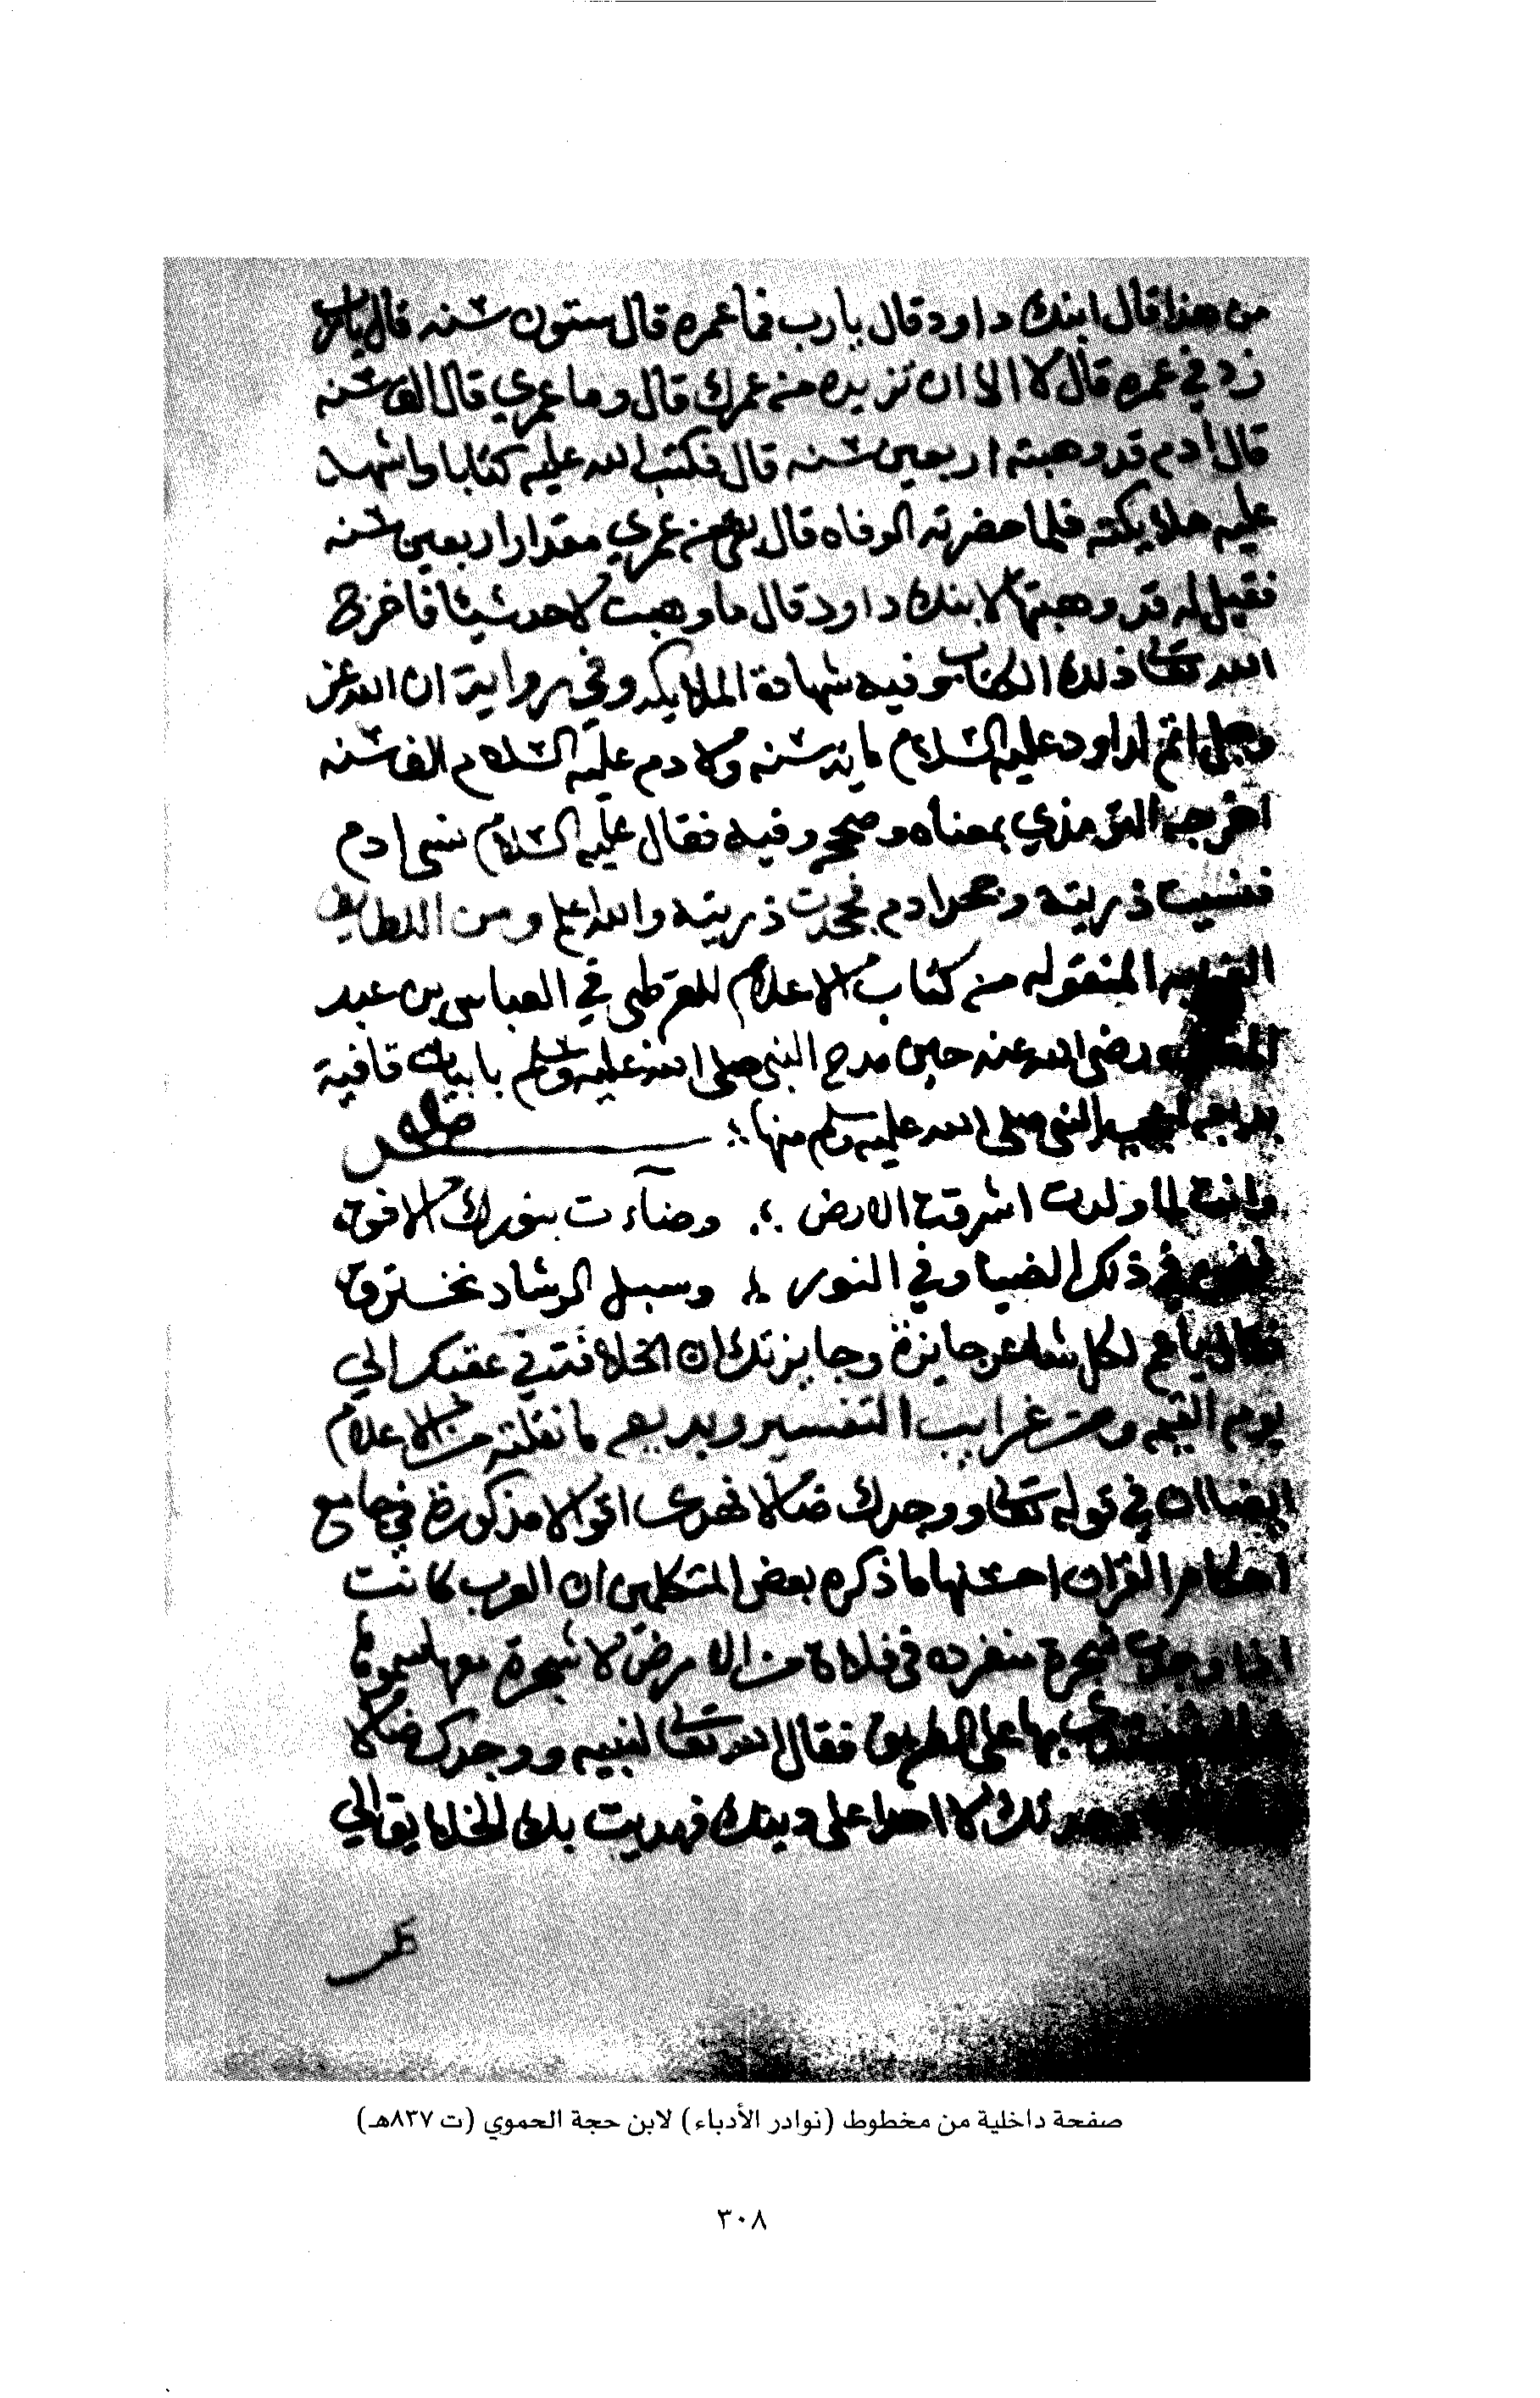 من هذا قال ابنك داود قال يارب فما عمره قال ستون سنه قال يارب
زد في عمره قال لا الا ان تزيده من عمرك قال وما عمري قال الف سنه
قال ادم قد وهبته اربعين سنه قال فكتب الله عليه كتابا واشهد
عليه ملايكته فلما حضرته الوفاه قال بقي من عمري مقدار اربعين سنه
فقيل له قد وهبتها لابنك داود قال ما وهبت لاحد شيئا فاخرج
الله تعالى ذلك الكتاب وفيه شهادة الملايكه وفي رواية ان الله عز
وجل اتم لداود عليه السلام مايه سنه ولادم عليه السلام الف سنه
اخرجه الترمذي بمعناه وصححه وفيه فقال عليه السلام نسي ادم
فنسيت ذريته وجحد ادم فجحدت ذريته والله اعلم ومن اللطايف
المنقوله من كتاب الاعلام للقرطبي في العباس بن عبد
المطلب رضى الله عنه حين مدح النبي صلى الله عليه وسلم بابيات قافية
بديعه النبي صلى الله عليه وسلم منها
وانت لما ولدت اشرقت الارض ؞ وضآءت بنورك الافق
فنحن في ذلك الضيا وفي النور ؞ وسبل الرشاد نخترق
فقال يا عم لكل شاعر جايزة وجايزتك ان الخلافة في عقبك الي
يوم القيمه ومن غرايب التفسير وبديعه ما نقلته من الاعلام
ايضا ان في قوله تعالى ووجدك ضالا فهدى اقوالا مذكورة في جامع
احكام القران احسنها ما ذكره بعض المتكلمين ان العرب كانت
اذا وجدت شجرة منفرده في فلاة من الارض لا شجرة معها سموها
ضاله فيهتدي بها على الطريق فقال الله تعالى لنبيه ووجدك ضالا
وجدتك لا احدا على دينك فهديت بك الخلايق الي
صفحة داخلية من مخطوط (نوادر الأدباء) لابن حجة الحموي (ت ٨٣٧هـ)
٣٠٨